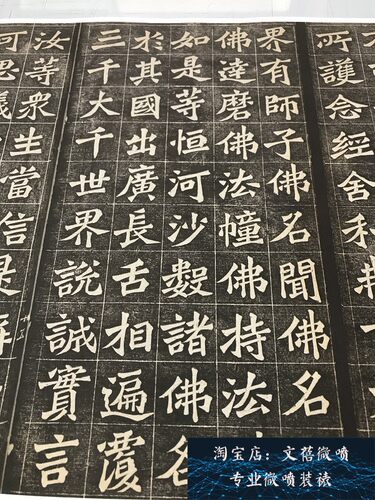 所護念經舍利
界有師子佛名聞佛名
佛達磨佛法幢佛持法
如是等恒河沙數諸佛各
於其國出廣長舌相遍覆
三千大千世界說誠實言
汝等眾生當信是
可思議
淘宝店：文蓓微喷
专业微喷装裱